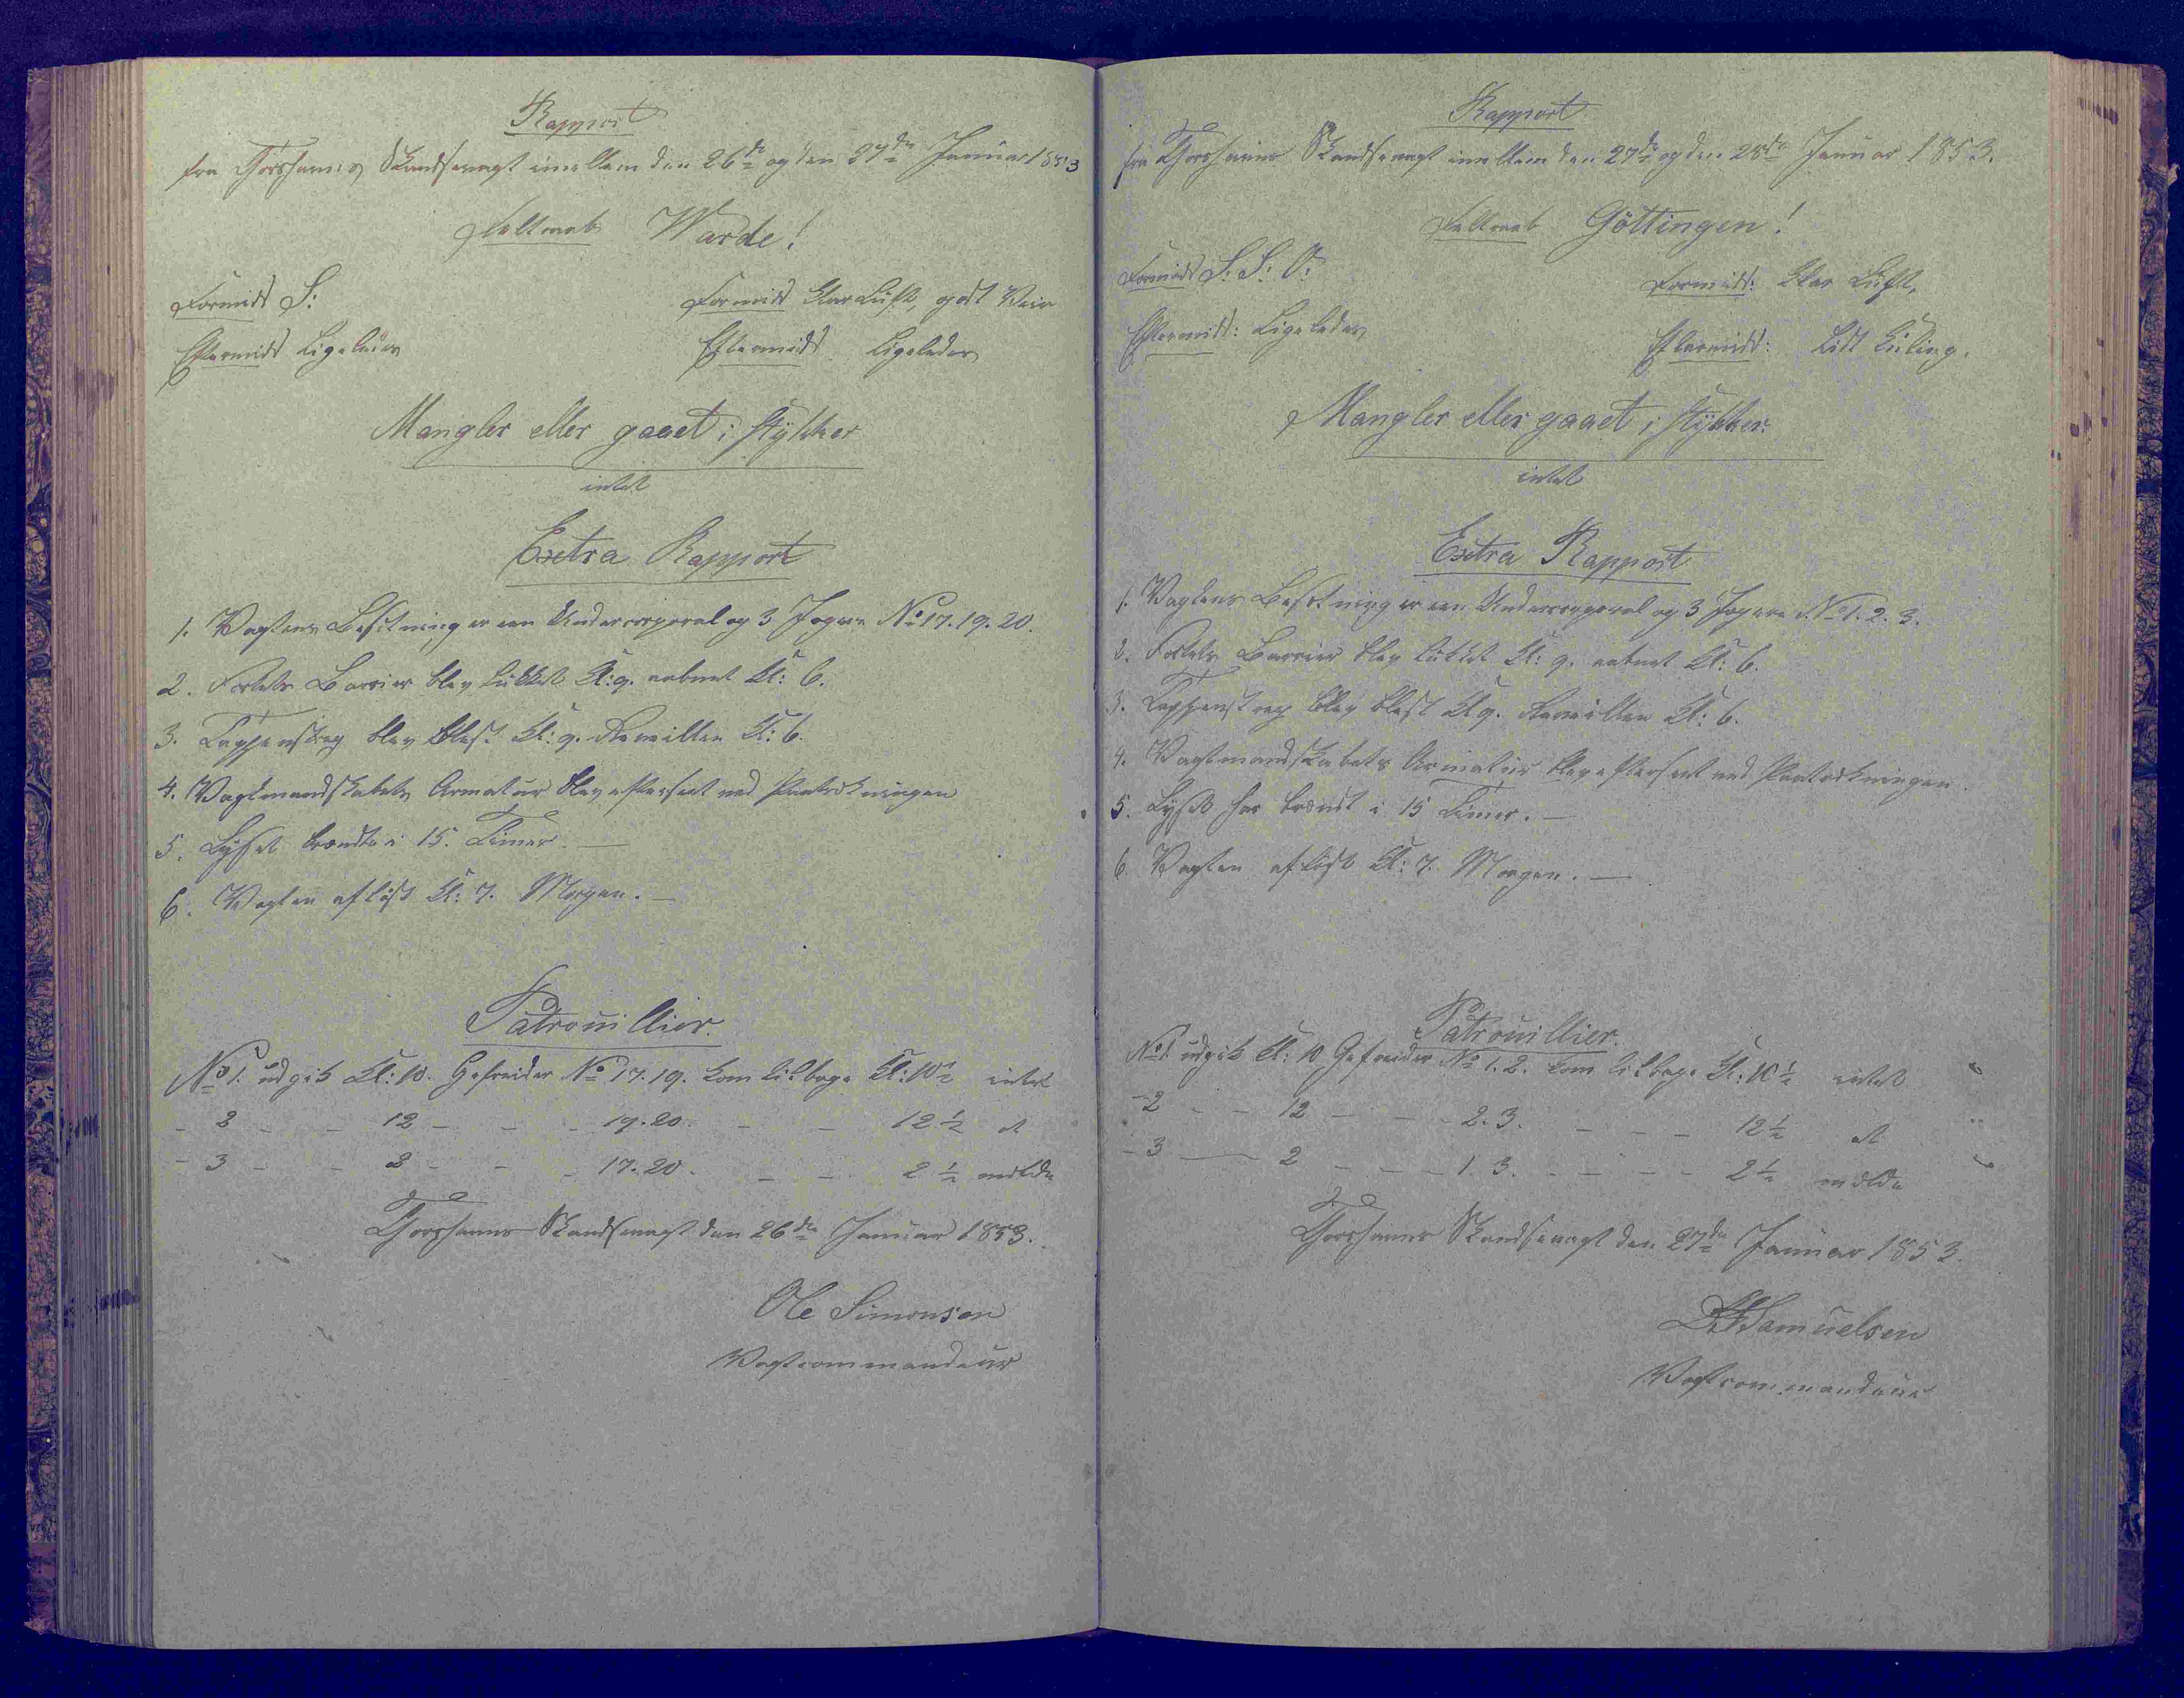 Rapport
fra Thorshavns Skandsevagt imellem den 26de og den 27de Januar 1853
Feltraab Warde!
Formidd S:
Formidd Klar Luft, godt Veir
Eftermidd Ligeledes
Eftermidd Ligeledes
Mangler eller gaaet i stykker
intet
Extra Rapport
1. Vagtens Besætning er een Undercorporal og 3 Jægere No 17. 19. 20.
2. Fortets Barrier blev lukket Kl: 9. aabnet Kl: 6.
3. Tappenstreg blev blæst Kl: 9. Reveillen Kl: 6.
4. Vagtmandskabets Armatur blev efterseet ved Paatrækningen
5. Lyset brændte i 15. Timer. —
6. Vagten afløst Kl: 7. Morgen. —
Patrouillier.
No 1. udgik Kl: 10. Gefreider No 17. 19. kom tilbage Kl: 10½ intet
- 2 - - 12 - - - 19. 20. - - 12½ at
- 3 - - 2 - - - 17. 20. - - 2½ melde
Thorshavns Skandsevagt den 26de Januar 1853.
Ole Simonsen
Vagtcommandeur
Rapport
fra Thorshavns Skandsevagt imellem den 27de og den 28de Januar 1853.
Feltraab Göttingen!
Formidd S: S: O:
Formidd: Klar Luft,
Eftermidd: Ligeledes
Eftermidd: Lidt Kuling.
Mangler eller gaaet i stykker.
intet
Extra Rapport
1. Vagtens Besætning er een Undercorporal og 3 Jægere No 1. 2. 3.
2. Fortets Barrier blev lukket Kl: 9. aabnet Kl: 6.
3. Tappenstreg blev blæst Kl 9. Reveillen Kl: 6.
4. Vagtmandskabets Armatur blev efterseet ved Paatrækningen.
5. Lyset har brændt i 15 Timer. —
6. Vagten afløst Kl: 7. Morgen. —
Patrouillier.
No 1. udgik Kl: 10 Gefreider No 1. 2. kom tilbage Kl: 10½ intet
- 2 - - 12 - - - 2. 3. - - - 12½ at
- 3 — 2 - - - 1. 3. - - - - 2½ melde
Thorshavns Skandsevagt den 27de Januar 1853.
Samuelsen
Vagtcommandeur